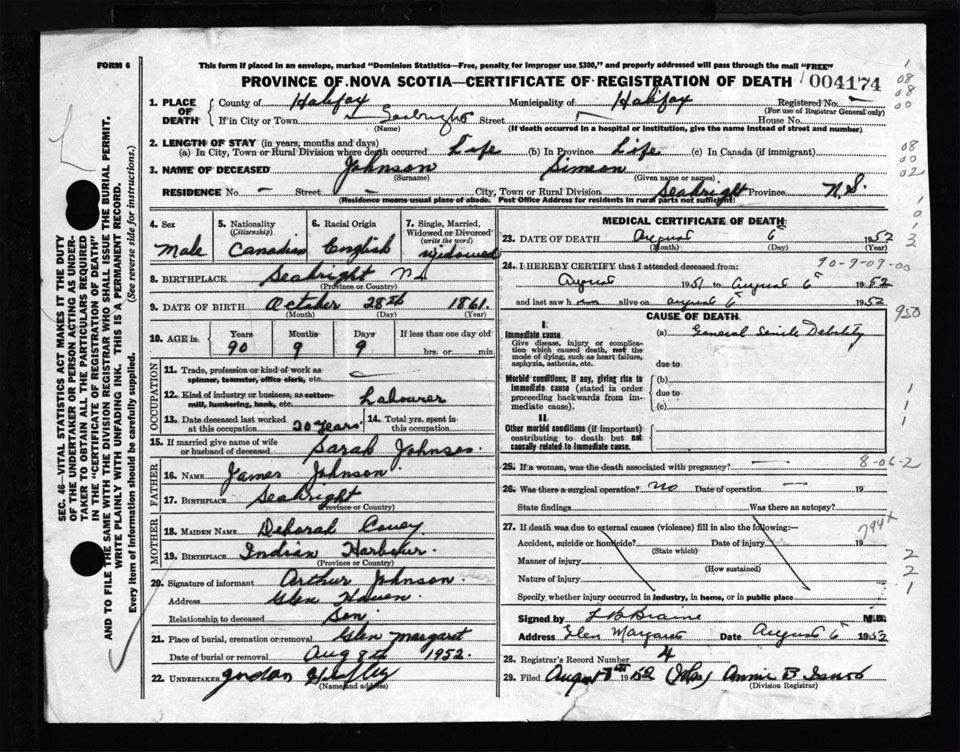 FORM 6
This form if placed in an envelope, marked "Dominion Statistics—Free, penalty for improper use, $300," and properly addressed will pass through the mail "FREE"
PROVINCE OF NOVA SCOTIA—CERTIFICATE OF REGISTRATION OF DEATH 004174
1. PLACE OF DEATH County of Halifax Municipality of Halifax Registered No.
(For use of Registrar General only)
If in City or Town Seabright Street House No.
(Name) (If death occurred in a hospital or institution, give the name instead of street and number)
2. LENGTH OF STAY (in years, months and days)
(a) In City, Town or Rural Division where death occurred Life (b) In Province Life (c) In Canada (if immigrant)
3. NAME OF DECEASED Johnson Simeon
(Surname) (Given name or names)
RESIDENCE No — Street — City, Town or Rural Division Seabright Province N.S.
(Residence means usual place of abode. Post Office Address for residents in rural parts not sufficient)
4. Sex 5. Nationality 6. Racial Origin 7. Single, Married, Widowed or Divorced
(Citizenship) (write the word)
Male Canadian English Widowed
8. BIRTHPLACE Seabright NS
(Province or Country)
9. DATE OF BIRTH October 28th 1861
(Month) (Day) (Year)
10. AGE in Years Months Days If less than one day old
90 9 9 hrs. or min.
OCCUPATION
11. Trade, profession or kind of work as spinner, teamster, office clerk, etc.
12. Kind of industry or business, as cotton-mill, lumbering, bank, etc. Labourer
13. Date deceased last worked at this occupation 20 years 14. Total yrs. spent in this occupation
15. If married give name of wife or husband of deceased Sarah Johnson
FATHER
16. NAME James Johnson
17. BIRTHPLACE Seabright
(Province or Country)
MOTHER
18. MAIDEN NAME Deborah Covey
19. BIRTHPLACE Indian Harbour
(Province or Country)
20. Signature of informant Arthur Johnson
Address Glen Haven
Relationship to deceased Son
21. Place of burial, cremation or removal Glen Margaret
Date of burial or removal Aug 8th 1952
22. UNDERTAKER
(Name and address)
MEDICAL CERTIFICATE OF DEATH
23. DATE OF DEATH August 6 1952
(Month) (Day) (Year)
90-9-09-00
24. I HEREBY CERTIFY that I attended deceased from:
August 1951 to August 6 1952
and last saw him alive on August 6 1952
CAUSE OF DEATH
950
I.
Immediate cause
Give disease, injury or complication which caused death, not the mode of dying, such as heart failure, asphyxia, asthenia, etc.
(a) General Senile Debility
due to
Morbid conditions, if any, giving rise to immediate cause (stated in order proceeding backwards from immediate cause).
(b)
due to
(c)
II.
Other morbid conditions (if important) contributing to death but not causally related to immediate cause.
25. If a woman, was the death associated with pregnancy? — 8-06-2
26. Was there a surgical operation? No Date of operation — 19
State findings Was there an autopsy?
27. If death was due to external causes (violence) fill in also the following:—
794x
Accident, suicide or homicide? Date of injury 19
(State which)
Manner of injury
(How sustained)
Nature of injury
Specify whether injury occurred in industry, in home, or in public place
Signed by M.D.
Address Glen Margaret Date August 6 1952
28. Registrar's Record Number 4
29. Filed August 1952 (Mrs) Annie B
(Division Registrar)
SEC. 46—VITAL STATISTICS ACT MAKES IT THE DUTY
OF THE UNDERTAKER OR PERSON ACTING AS UNDERTAKER TO OBTAIN ALL THE PARTICULARS REQUIRED
IN THE "CERTIFICATE OF REGISTRATION OF DEATH"
AND TO FILE THE SAME WITH THE DIVISION REGISTRAR WHO SHALL ISSUE THE BURIAL PERMIT.
WRITE PLAINLY WITH UNFADING INK. THIS IS A PERMANENT RECORD.
Every item of information should be carefully supplied. (See reverse side for instructions.)